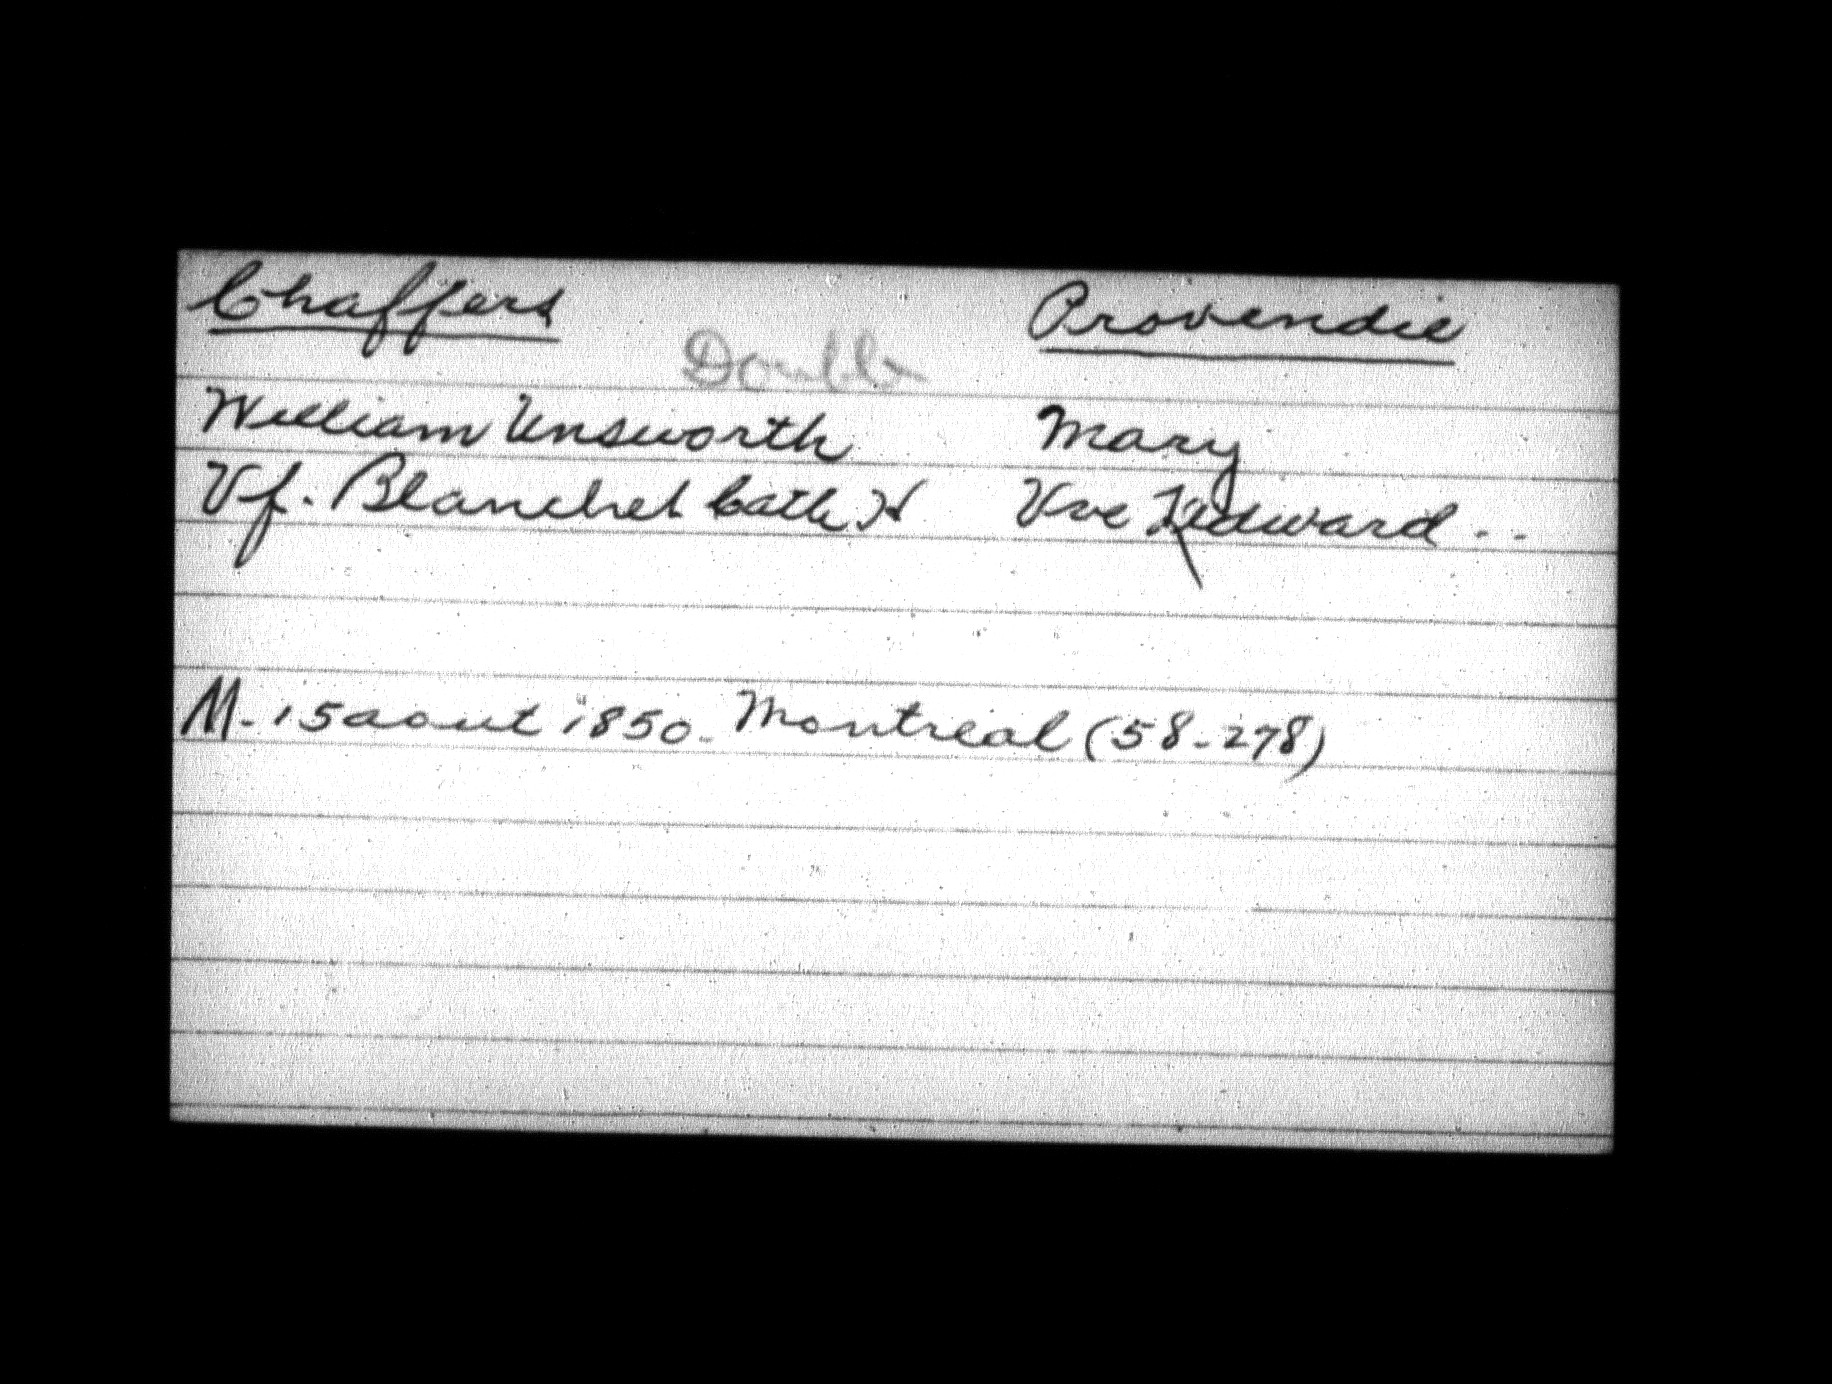 Chaffers Provendie
Double
William Unsworth Mary
Vf. Blanchet Cath H Vve Kedward ..
M. 15 aout 1850. Montreal (58-278)